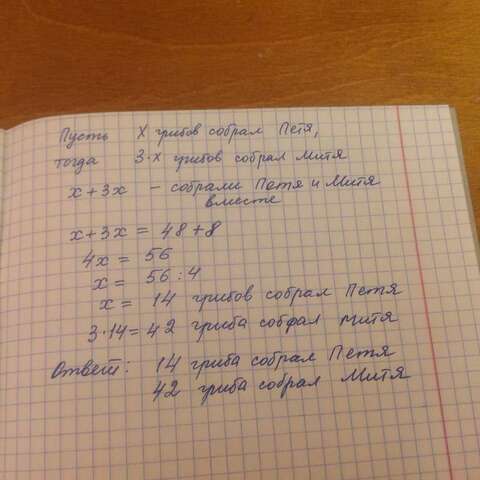 Пусть X грибов собрал Петя,
тогда 3·x грибов собрал Митя
x + 3x – собрали Петя и Митя
вместе
x + 3x = 48 + 8
4x = 56
x = 56 : 4
x = 14 грибов собрал Петя
3·14 = 42 гриба собрал Митя
Ответ: 14 гриба собрал Петя
42 гриба собрал Митя